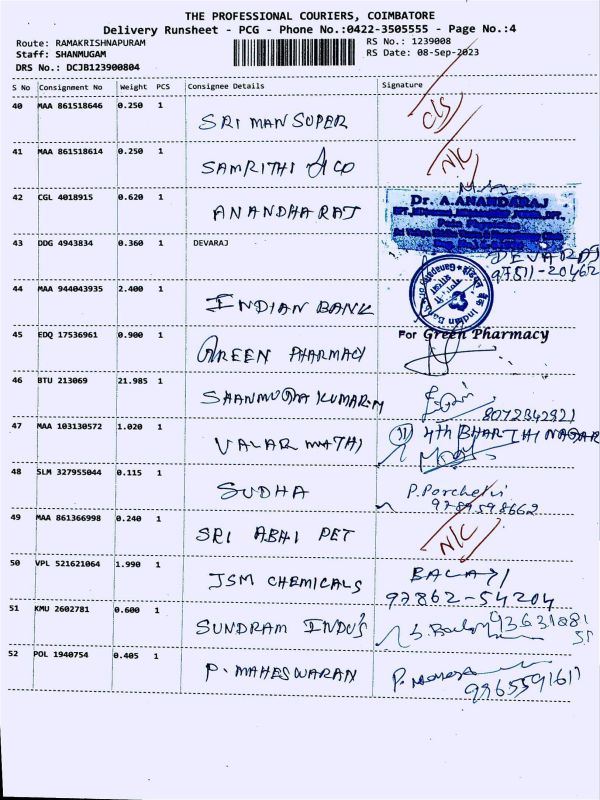 THE PROFESSIONAL COURIERS, COIMBATORE
Delivery Runsheet - PCG - Phone No.:0422-3505555 - Page No.:4
Route: RAMAKRISHNAPURAM
RS No.: 1239008
Staff: SHANMUGAM
RS Date: 08-Sep-2023
DRS No.: DCJB123900804
S No Consignment No Weight PCS Consignee Details Signature
40 MAA 861518646 0.250 1
SRI MAN SUPER
C/S
41 MAA 861518614 0.250 1
SAMRITHI & CO
N/C
42 CGL 4018915 0.620 1
ANANDHARAJ
Dr. A.ANANDARAJ
43 DDG 4943834 0.360 1 DEVARAJ
DEVARAJ
97511-20462
44 MAA 944043935 2.400 1
INDIAN BANK
Indian Bank
45 EDQ 17536961 0.900 1
For Green Pharmacy
GREEN PHARMACY
46 BTU 213069 21.985 1
SHANMUGA KUMARAN
8072342921
47 MAA 103130572 1.020 1
VALARMATHI
4th BHARTHI NAGAR
48 SLM 327955044 0.115 1
SUDHA
P. Porchelvi
9789598662
49 MAA 861366998 0.240 1
SRI ABHI PET
N/C
50 VPL 521621064 1.990 1
JSM CHEMICALS
BALAJI
97862-54204
51 KMU 2602781 0.600 1
SUNDRAM INDUS
52 POL 1940754 0.405 1
P. MAHESWARAN
9965591611